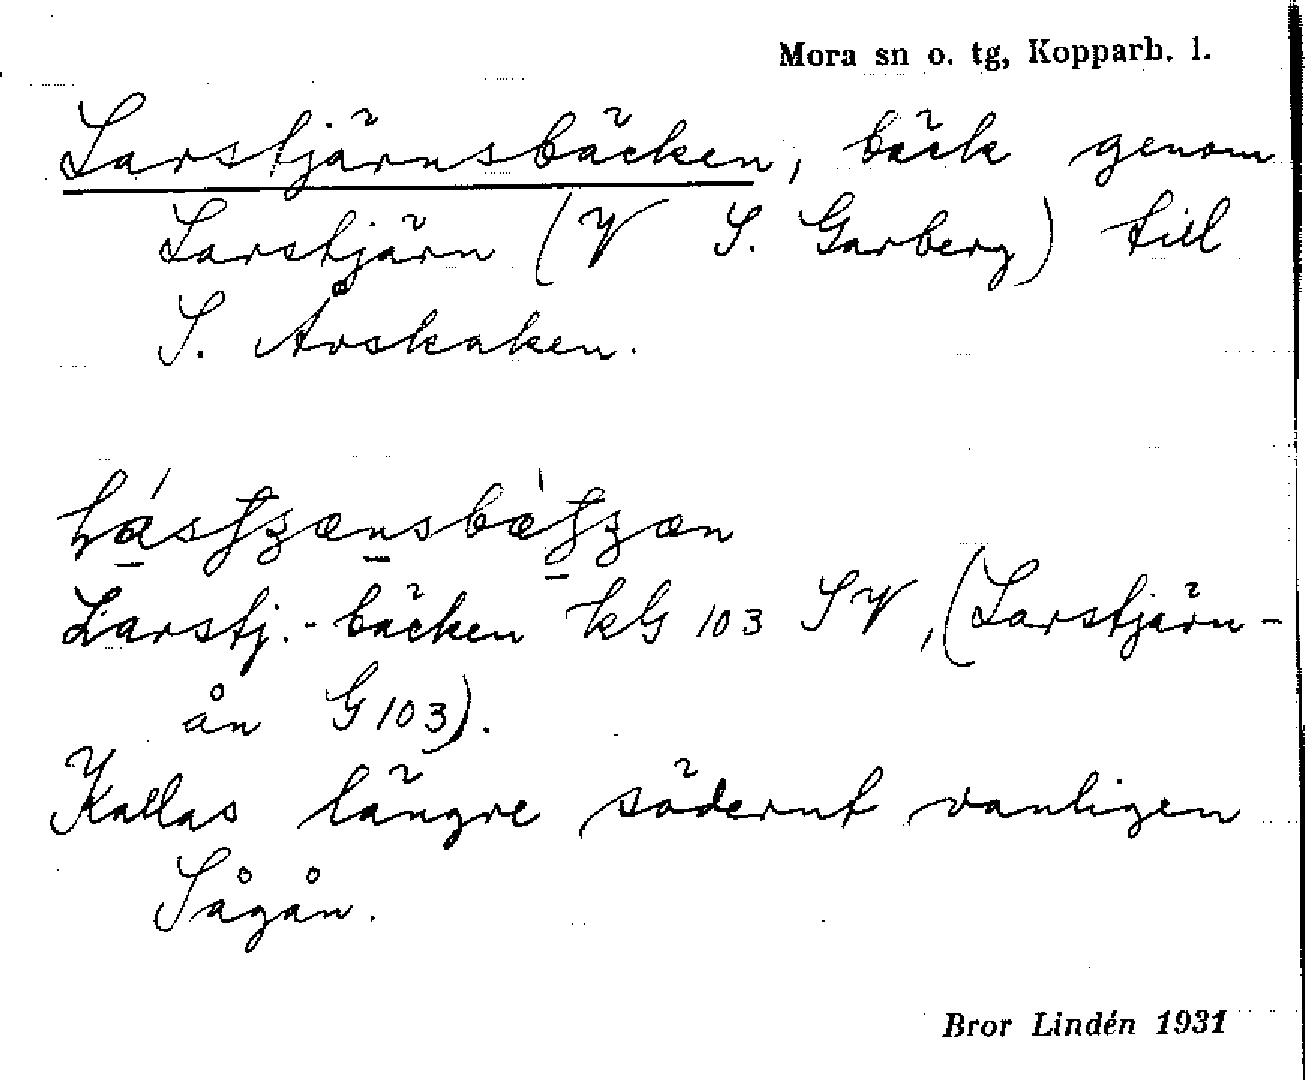 Mora sn o. tg, Kopparb. l.
Larstjärnsbäcken, bäck genom
Larstjärn (V S. Garberg) till
S. Årskaken.
Larstj.-bäcken kG 103 SV, (Larstjärn-
ån G 103).
Kallas längre söderut vanligen
Sågån.
Bror Lindén 1931